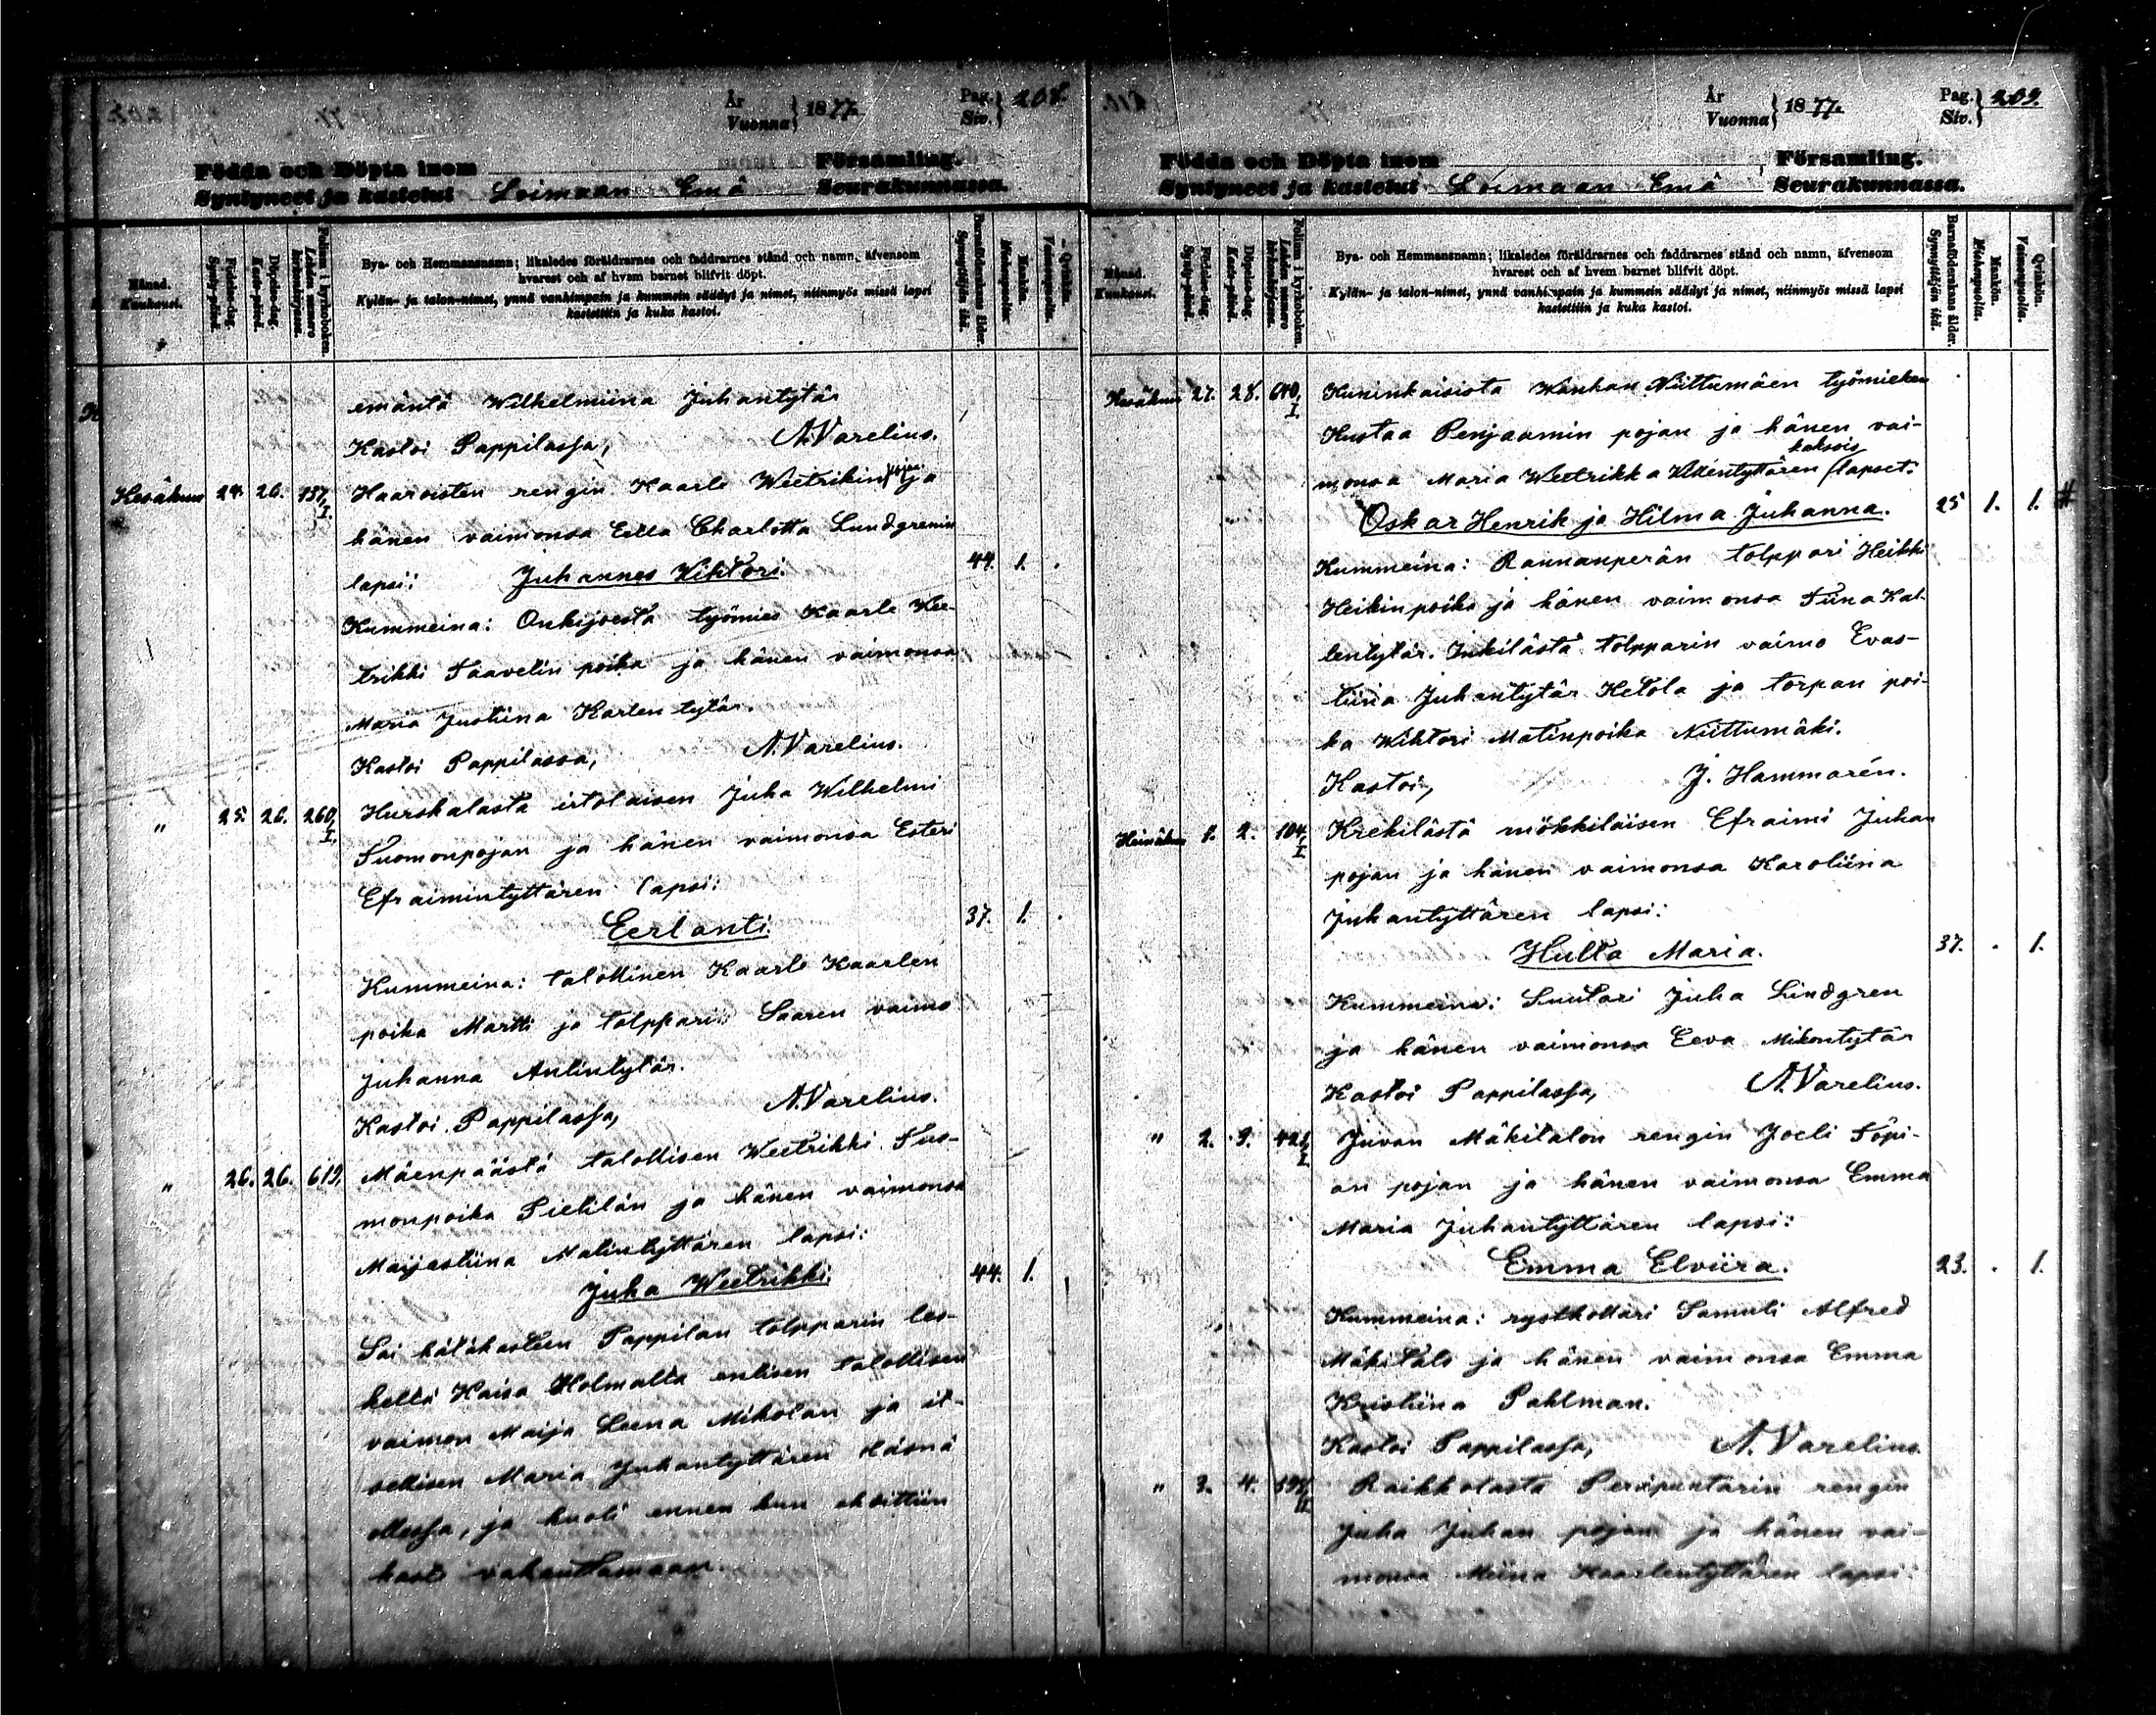 År
Vuonna } 1877.
Pag.
Siv. } 208.
Födda och Döpta inom Församling.
Syntyneet ja kastetut Loimaan Emä Seurakunnassa.
Månad.
Kuukausi.
Födelse-dag.
Synty-päivä.
Döpelse-dag.
Kaste-päivä.
Folium i kyrkoboken.
Lehden numero kirkonkirjassa.
Bya- och Hemmansnamn; likaledes föräldrarnes och faddrarnes stånd och namn, äfvensom
hvarest och af hvem barnet blifvit döpt.
Kylän- ja talon-nimet, ynnä vanhimpain ja kummein säädyt ja nimet, niinmyös missä lapsi
kastettiin ja kuka kastoi.
Barnaföderskans ålder.
Synnyttäjän ikä.
Mankön.
Miehenpuolia.
Qvinkön.
Vaimonpuolia.
emäntä Wilhelmiina Juhantytär
Kastoi Pappilassa, A. Varelius.
Kesäkuu 24. 26. 137, I. Haaroisten rengin Kaarle Weetrikin pojan ja
hänen vaimonsa Eella Charlotta Lundgrenin
lapsi: Juhannes Wihtori. 44. 1. .
Kummeina: Onkijoesta työmies Kaarle Wee-
trikki Taavelin poika ja hänen vaimonsa
Maria Justiina Karlen tytär.
Kastoi Pappilassa, A. Varelius.
" 25. 26. 260, I. Hurskalasta irtolaisen Juha Wilhelmi
Tuomonpojan ja hänen vaimonsa Esteri
Efraimintyttären lapsi:
Eerlanti. 37. 1. .
Kummeina: talollinen Kaarle Kaarlen
poika Martti ja tolpparin Saaren vaimo
Juhanna Antintytär.
Kastoi Pappilassa, A. Varelius.
" 26. 26. 619, Mäenpäästä talollisen Weetrikki Tuo-
monpoika Pietilän ja hänen vaimonsa
Maijastiina Matintyttären lapsi:
Juha Weetrikki. 44. 1.
Sai hätäkasteen Pappilan tolpparin les-
keltä Kaisa Holmalta entisen talollisen
vaimon Maija Leena Mikolan ja it-
sellisen Maria Juhantyttären läsnä
ollessa, ja kuoli ennen kun ehdittiin
kaste vahvuttamaan.
År
Vuonna } 1877.
Pag.
Siv. } 209.
Födda och Döpta inom Församling.
Syntyneet ja kastetut Loimaan Emä Seurakunnassa.
Månad.
Kuukausi.
Födelse-dag.
Synty-päivä.
Döpelse-dag.
Kaste-päivä.
Folium i kyrkoboken.
Lehden numero kirkonkirjassa.
Bya- och Hemmansnamn; likaledes föräldrarnes och faddrarnes stånd och namn, äfvensom
hvarest och af hvem barnet blifvit döpt.
Kylän- ja talon-nimet, ynnä vanhimpain ja kummein säädyt ja nimet, niinmyös missä lapsi
kastettiin ja kuka kastoi.
Barnaföderskans ålder.
Synnyttäjän ikä.
Mankön.
Miehenpuolia.
Qvinkön.
Vaimonpuolia.
Kesäkuu 27. 28. 640, I. Kuninkaisista Wanhan Niittumäen työmiehen
Kustaa Penjaamin pojan ja hänen vai-
monsa Maria Weetrikka tyttären kaksois lapset:
Oskar Henrik ja Hilma Juhanna. 25 1. 1. #
Kummeina: Rannanperän tolppari Heikki
Heikinpoika ja hänen vaimonsa Tiina Kal-
lentytär. Inkilästä tolpparin vaimo Evas-
tiina Juhantytär Ketola ja torpan poi-
ka Wihtori Matinpoika Niittumäki.
Kastoi, J. Hammarén.
Heinäkuu 1. 2. 104, I. Krekilästä mökkiläisen Efraimi Juhan
pojan ja hänen vaimonsa Karoliina
Juhantyttären lapsi:
Hulta Maria. 37. . 1.
Kummeina: Suutari Juha Lindgren
ja hänen vaimonsa Eeva Mikontytär
Kastoi Pappilassa, A. Varelius.
" 2. 3. 421, I Juvan Mäkitalon rengin Joeli Töpi-
an pojan ja hänen vaimonsa Emma
Maria Juhantyttären lapsi:
Emma Elviira. 23. . 1.
Kummeina: rysthollari Samuli Alfred
Mäkitalo ja hänen vaimonsa Emma
Kristiina Pahlman.
Kastoi Pappilassa, A. Varelius.
" 3. 4. II Raikkolasta rengin
Juha Juhan pojan ja hänen vai-
monsa Miina Kaarlentyttären lapsi: